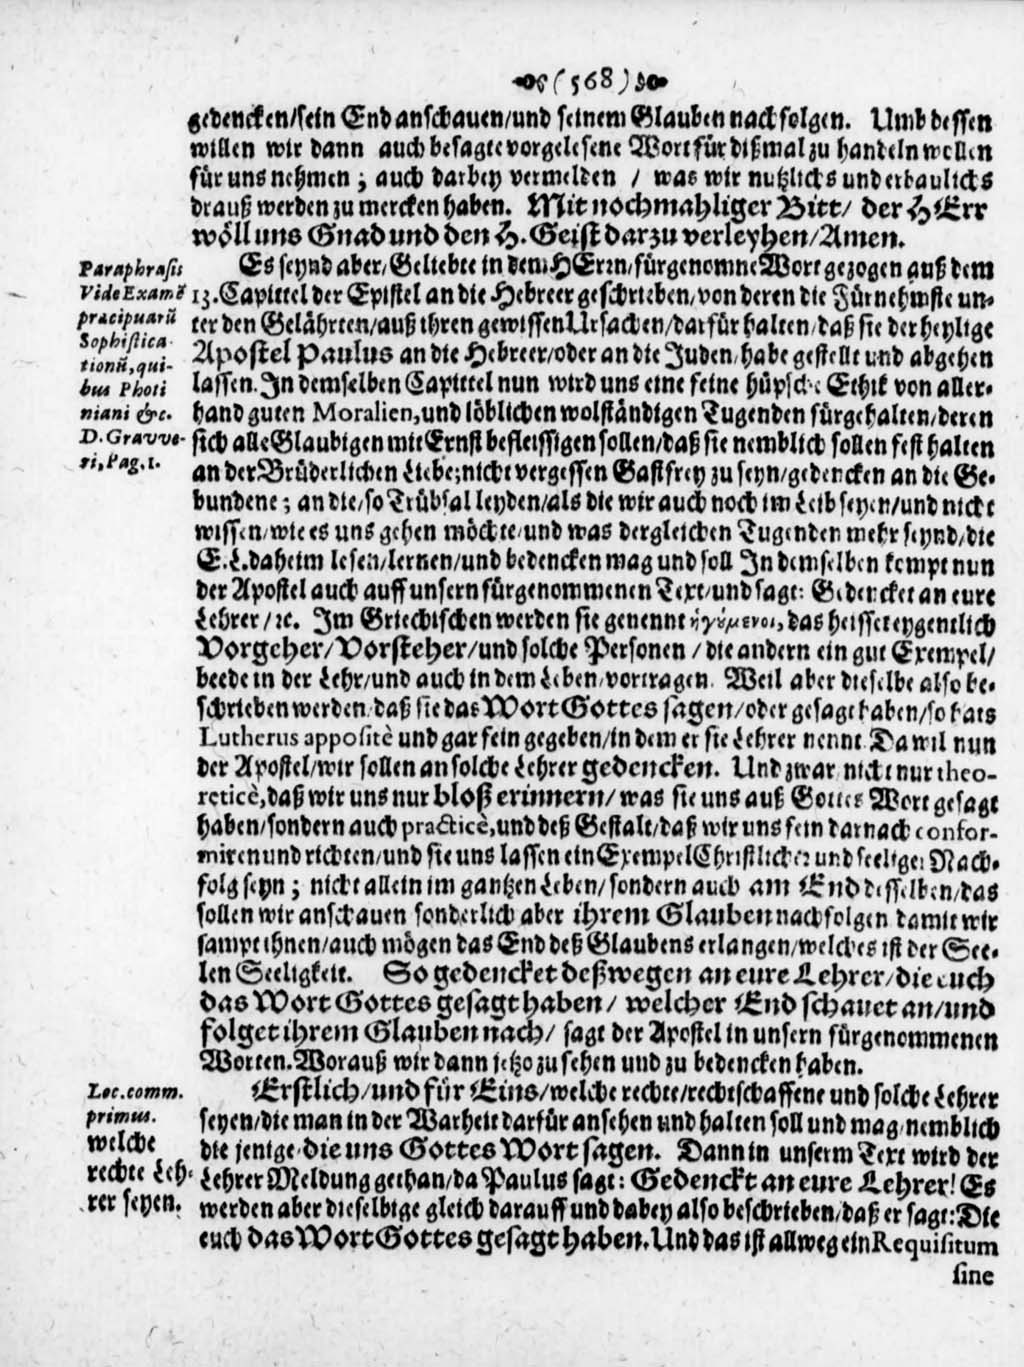 (568)
gedencken/sein End anschauen/und seinem Glauben nachfolgen. Umb dessen
willen wir dann auch besagte vorgelesene Wort für dißmal zu handeln wollen
für uns nehmen; auch darbey vermelden / was wir nutzlichs und erbaulichs
drauß werden zu mercken haben. Mit nochmahliger Bitt/ der HErr
wöll uns Gnad und den H. Geist darzu verleyhen/Amen.
Paraphrasis
Vide Examē
præcipuarũ
Sophistica-
tionũ, qui-
bus Photi
niani &c.
D. Gravve-
ri, Pag. 1.
Es seynd aber/Geliebte in dem HErrn/fürgenomne Wort gezogen auß dem
13. Capittel der Epistel an die Hebreer geschrieben/von deren die Fürnehmste un-
ter den Gelährten/auß ihren gewissen Ursachen/darfür halten/daß sie der heylige
Apostel Paulus an die Hebreer/oder an die Juden/habe gestellt und abgehen
lassen. In demselben Capittel nun wird uns eine feine hüpsche Ethik von aller-
hand guten Moralien, und löblichen wolständigen Tugenden fürgehalten/deren
sich alle Glaubigen mit Ernst befleissigen sollen/daß sie nemblich sollen fest halten
an der Brüderlichen Liebe; nicht vergessen Gastfrey zu seyn/gedencken an die Ge-
bundene; an die/so Trübsal leyden/als die wir auch noch im Leib seyen/und nicht
wissen/wie es uns gehen möchte/und was dergleichen Tugenden mehr seynd/die
E. L. daheim lesen/lernen/und bedencken mag und soll In demselben kompt nun
der Apostel auch auff unsern fürgenommenen Text/und sagt: Gedencket an eure
Lehrer/ꝛc. Im Griechischen werden sie genennt ἡγούμενοι, das heisset eygentlich
Vorgeher/Vorsteher/und solche Personen / die andern ein gut Exempel/
beede in der Lehr/und auch in dem Leben/vortragen. Weil aber dieselbe also be-
schrieben werden/daß sie das Wort Gottes sagen/oder gesagt haben/so hats
Lutherus appositè und gar fein gegeben/in dem er sie Lehrer nennt. Da wil nun
der Apostel/wir sollen an solche Lehrer gedencken. Und zwar nicht nur theo-
reticè, daß wir uns nur bloß erinnern/ was sie uns auß Gottes Wort gesagt
haben/sondern auch practicè, und deß Gestalt/daß wir uns fein darnach confor-
miren und richten/und sie uns lassen ein Exempel Christlicher und seeliger Nach-
folg seyn; nicht allein im gantzen Leben/ sondern auch am End desselben/das
sollen wir anschauen sonderlich aber ihrem Glauben nachfolgen damit wir
sampt ihnen/auch mögen das End deß Glaubens erlangen/welches ist der See-
len Seeligkeit. So gedencket deßwegen an eure Lehrer/die euch
das Wort Gottes gesagt haben/ welcher End schauet an/und
folget ihrem Glauben nach/ sagt der Apostel in unsern fürgenommenen
Worten. Worauß wir dann jetzo zu sehen und zu bedencken haben.
Loc. comm.
primus.
welche
rechte Leh-
rer seyen.
Erstlich/und für Eins/welche rechte/rechtschaffene und solche Lehrer
seyen/die man in der Warheit darfür ansehen und halten soll und mag/nemblich
die jenige/die uns Gottes Wort sagen. Dann in unserm Text wird der
Lehrer Meldung gethan/da Paulus sagt: Gedenckt an eure Lehrer! Es
werden aber dieselbige gleich darauff und dabey also beschrieben/daß er sagt: Die
euch das Wort Gottes gesagt haben. Und das ist allweg ein Requisitum
sine